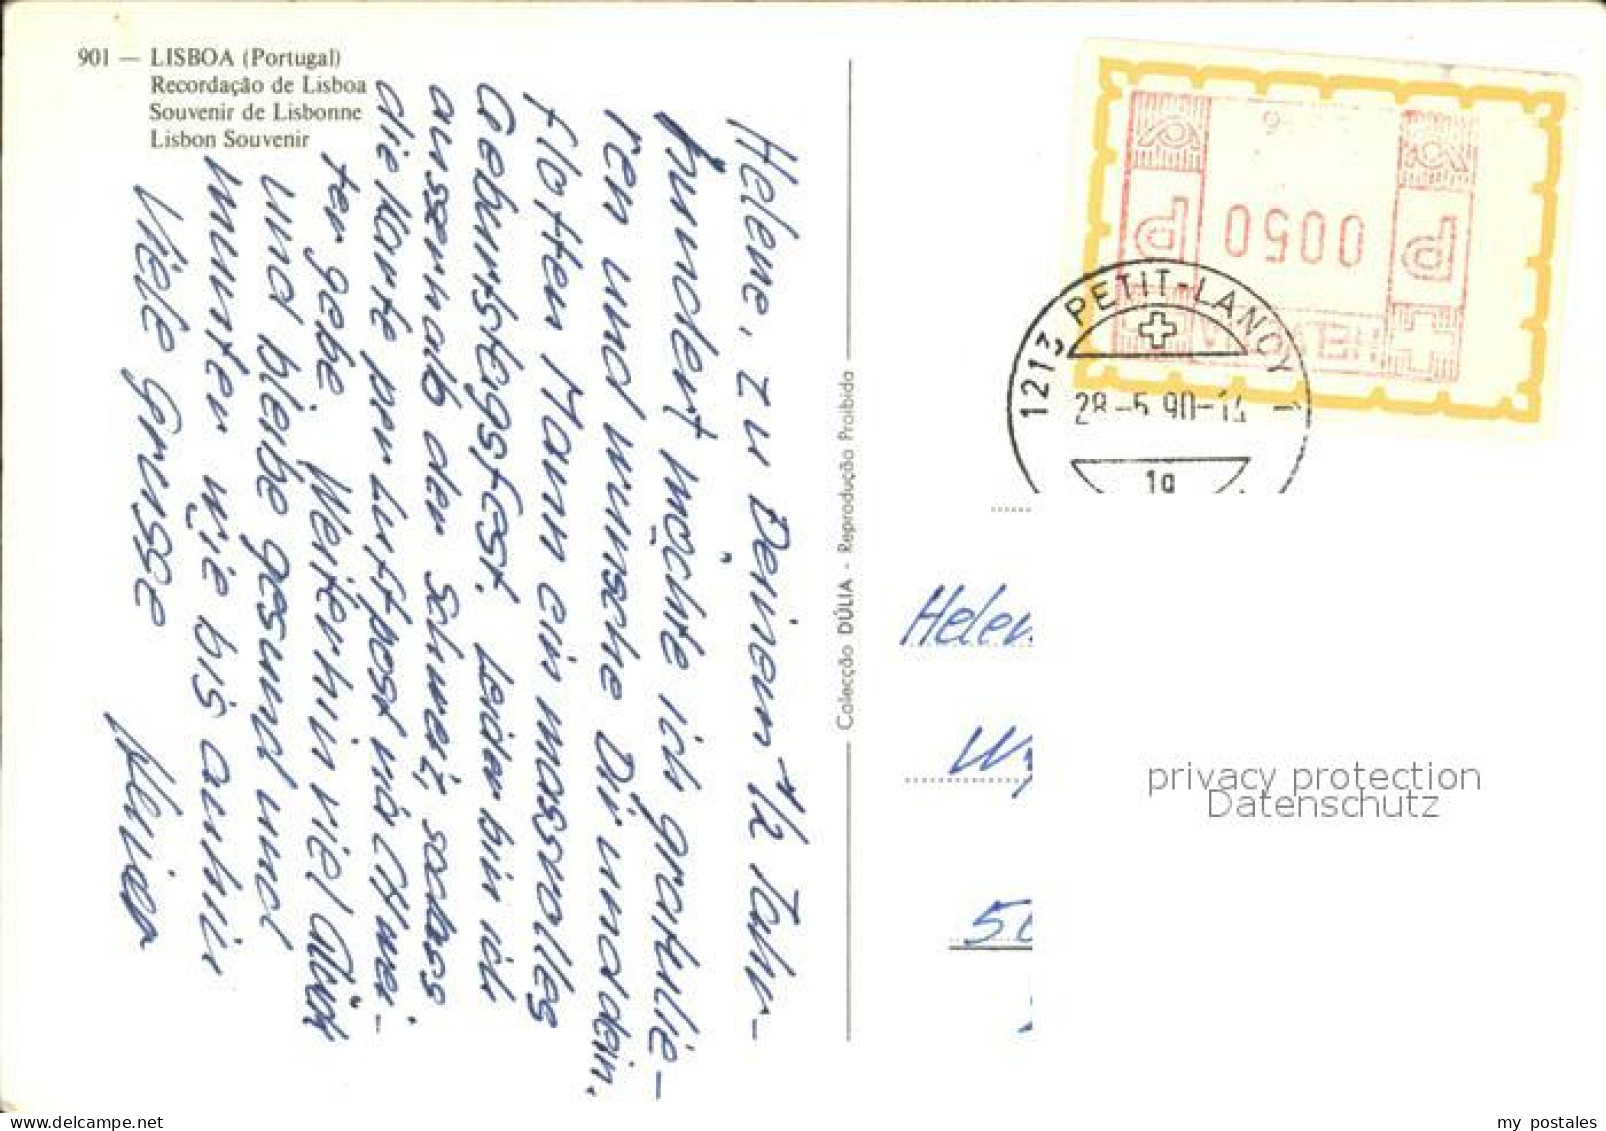 901 — LISBOA (Portugal)
Recordação de Lisboa
Souvenir de Lisbonne
Lisbon Souvenir
Helene, zu Deinem 1/2 Jahr-
hundert möchte ich gratulie-
ren und wünsche Dir und dein.
flotten Mann ein massvolles
Geburtstagsfest. Leider bin ich
ausserhalb der Schweiz, sodass
die Karte per Luftpost via
ter gebe. Weiterhin viel Glück
und bleibe gesund und
munter wie bis anhin
Viele Grüsse
Colecção DÚLIA - Reprodução Proibida
0050
P P
HELVETIA
1213 PETIT-LANCY
28-5.90-14
1g
Helen
Wy
50
privacy protection
Datenschutz
www.delcampe.net
my_postales